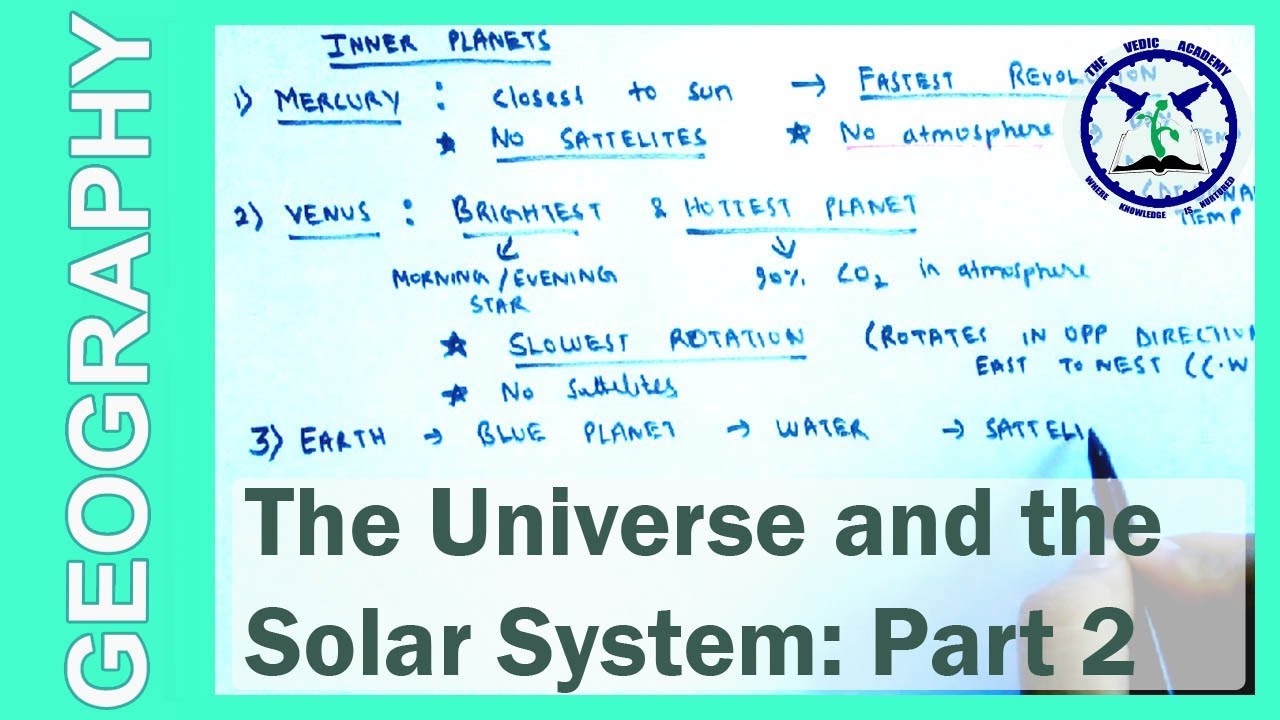 GEOGRAPHY
INNER PLANETS
1) MERCURY : closest to sun → FASTEST REVOLUTION
★ NO SATTELITES ★ No atmosphere
THE VEDIC ACADEMY
WHERE KNOWLEDGE IS NURTURED
TEMP
2) VENUS : BRIGHTEST & HOTTEST PLANET
MORNING/EVENING 90% CO2 in atmosphere
STAR
★ SLOWEST ROTATION (ROTATES IN OPP DIRECTION
EAST TO WEST
★ No sattelites
3) EARTH → BLUE PLANET → WATER → SATTELI
The Universe and the
Solar System: Part 2